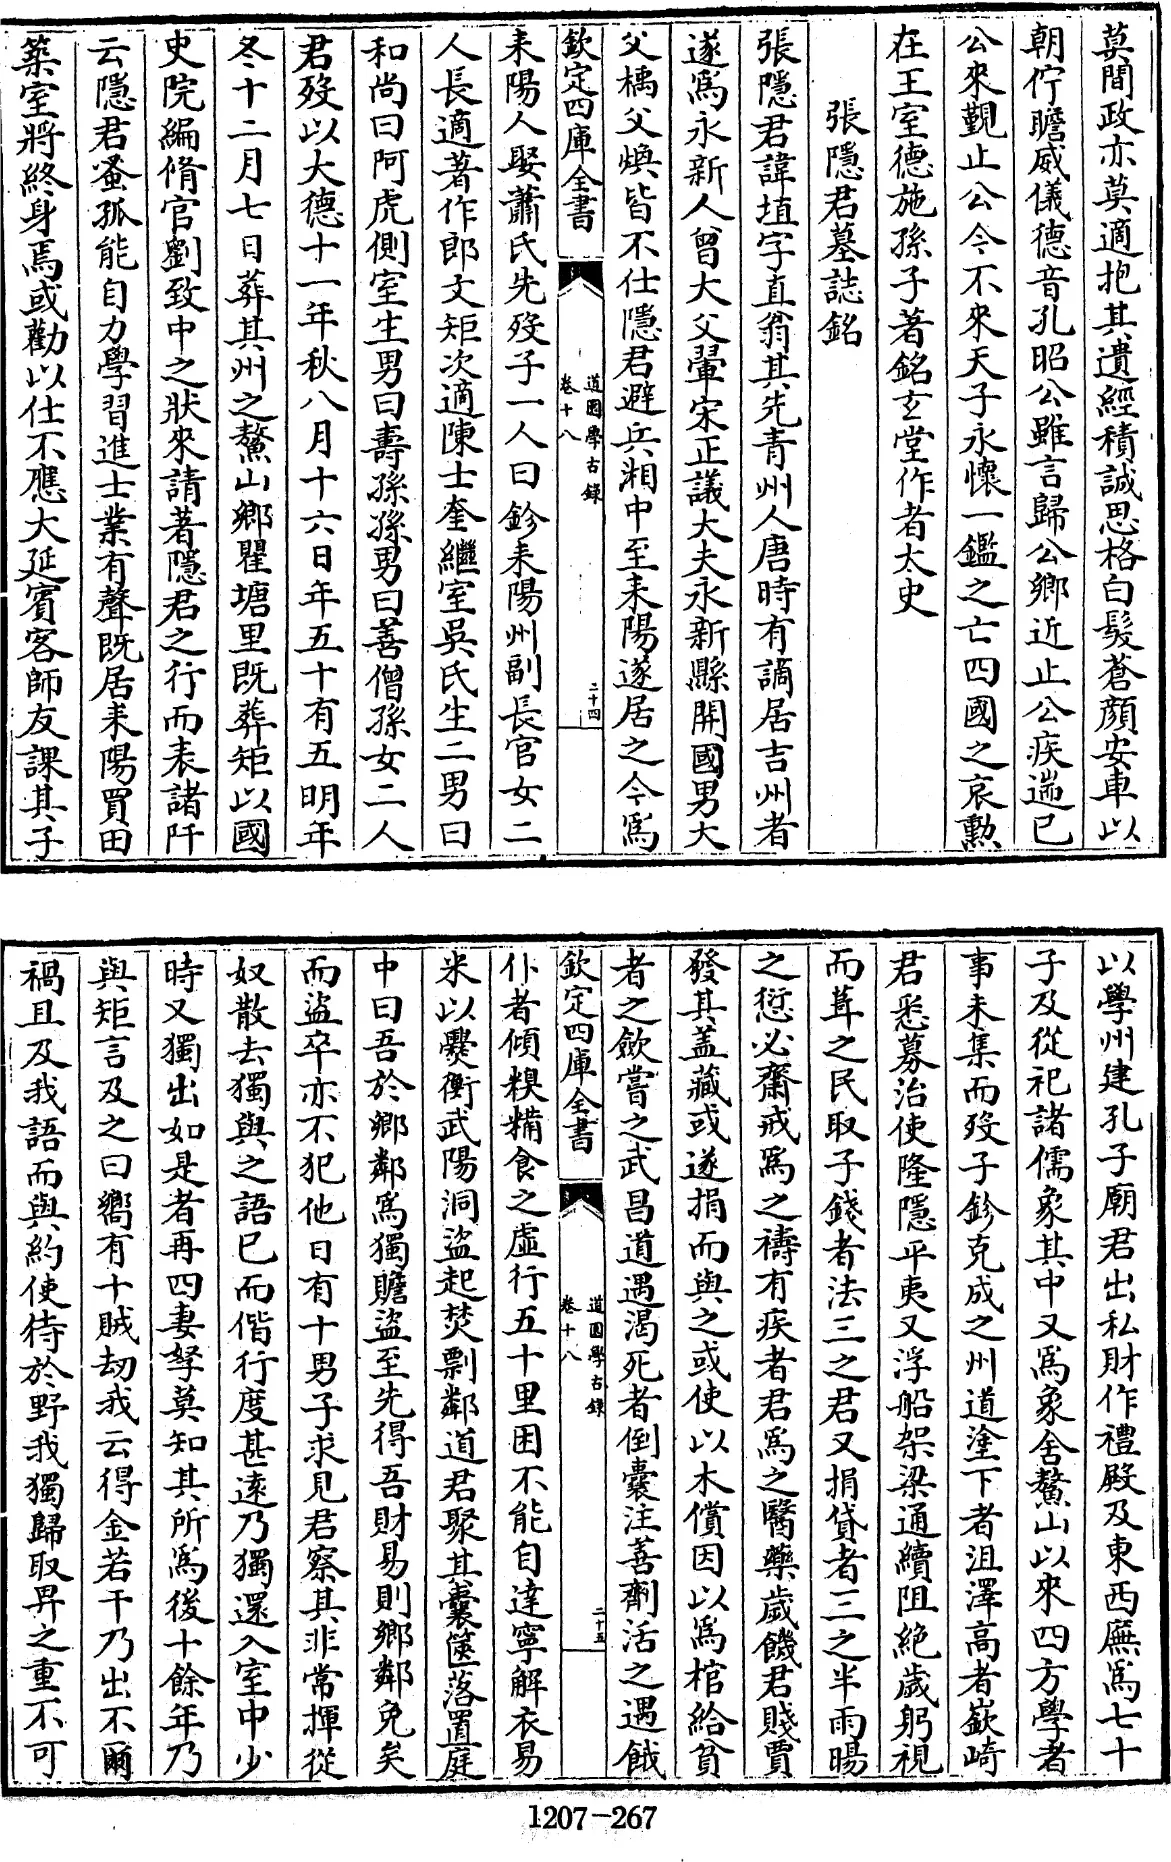 莫間政亦莫適抱其遺經積誠思格白髮蒼顔安車以
朝佇瞻威儀德音孔昭公雖言歸公鄉近止公疾遄已
公來覲止公今不來天子永懷一鑑之亡四國之哀勲
在王室德施孫子著銘玄堂作者太史
張隱君墓誌銘
張隱君諱埴字直翁其先青州人唐時有謫居吉州者
遂爲永新人曾大父翬宋正議大夫永新縣開國男大
父橚父煥皆不仕隱君避兵湘中至耒陽遂居之今爲
欽定四庫全書
道園學古錄
卷十八
二十四
耒陽人娶蕭氏先歿子一人曰鉁耒陽州副長官女二
人長適著作郎文矩次適陳士奎繼室吳氏生二男曰
和尚曰阿虎側室生男曰壽孫孫男曰善僧孫女二人
君歿以大德十一年秋八月十六日年五十有五明年
冬十二月七日葬其州之鰲山鄉瞿塘里既葬矩以國
史院編脩官劉致中之狀來請著隱君之行而表諸阡
云隱君蚤孤能自力學習進士業有聲既居耒陽買田
築室將終身焉或勸以仕不應大延賓客師友課其子
以學州建孔子廟君出私財作禮殿及東西廡爲七十
子及從祀諸儒象其中又爲象舍鰲山以來四方學者
事未集而歿子鉁克成之州道塗下者沮澤高者嶔崎
君悉募治使隆隱平夷又浮船架梁通續阻絶歲躬視
而葺之民取子錢者法三之君又捐貸者三之半雨暘
之愆必齋戒爲之禱有疾者君爲之醫藥歲饑君賤賈
發其盖藏或遂捐而與之或使以木償因以爲棺給貧
者之斂嘗之武昌道遇渴死者倒囊注善劑活之遇餓
欽定四庫全書
道園學古錄
卷十八
二十五
仆者傾糗糒食之虛行五十里困不能自達寧解衣易
米以爨衡武陽洞盜起焚剽鄰道君聚其囊篋落置庭
中曰吾於鄉鄰爲獨贍盜至先得吾財易則鄉鄰免矣
而盜卒亦不犯他日有十男子求見君察其非常揮從
奴散去獨與之語已而偕行度甚逺乃獨還入室中少
時又獨出如是者再四妻孥莫知其所爲後十餘年乃
與矩言及之曰嚮有十賊刼我云得金若干乃出不爾
禍且及我語而與約使待於野我獨歸取畀之重不可
1207-267